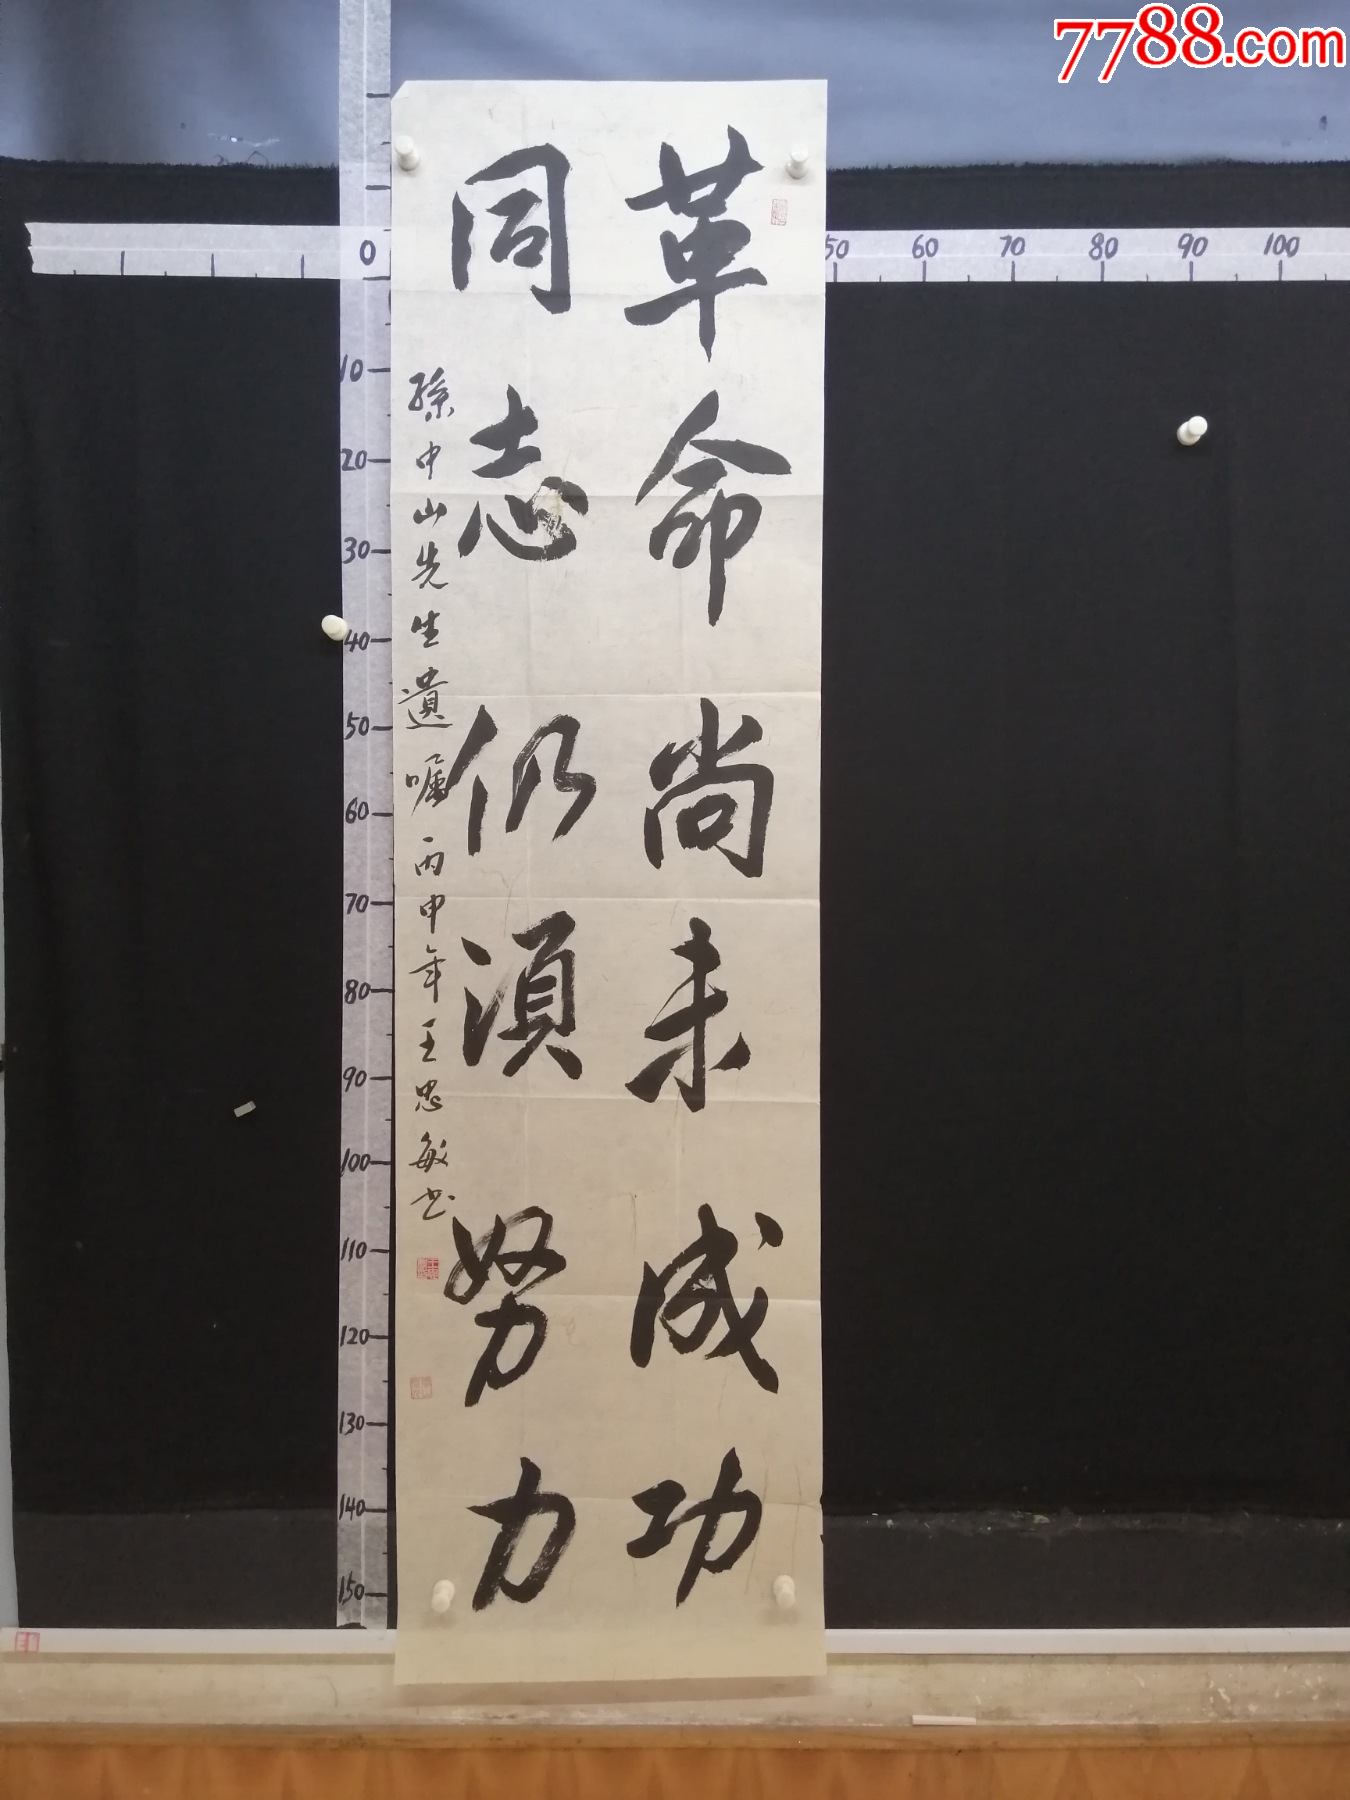 7788.com
革命尚未成功
同志仍須努力
孫中山先生遺嘱丙申年王忠敏书
0 50 60 70 80 90 100
10
20
30
40
50
60
70
80
90
100
110
120
130
140
150